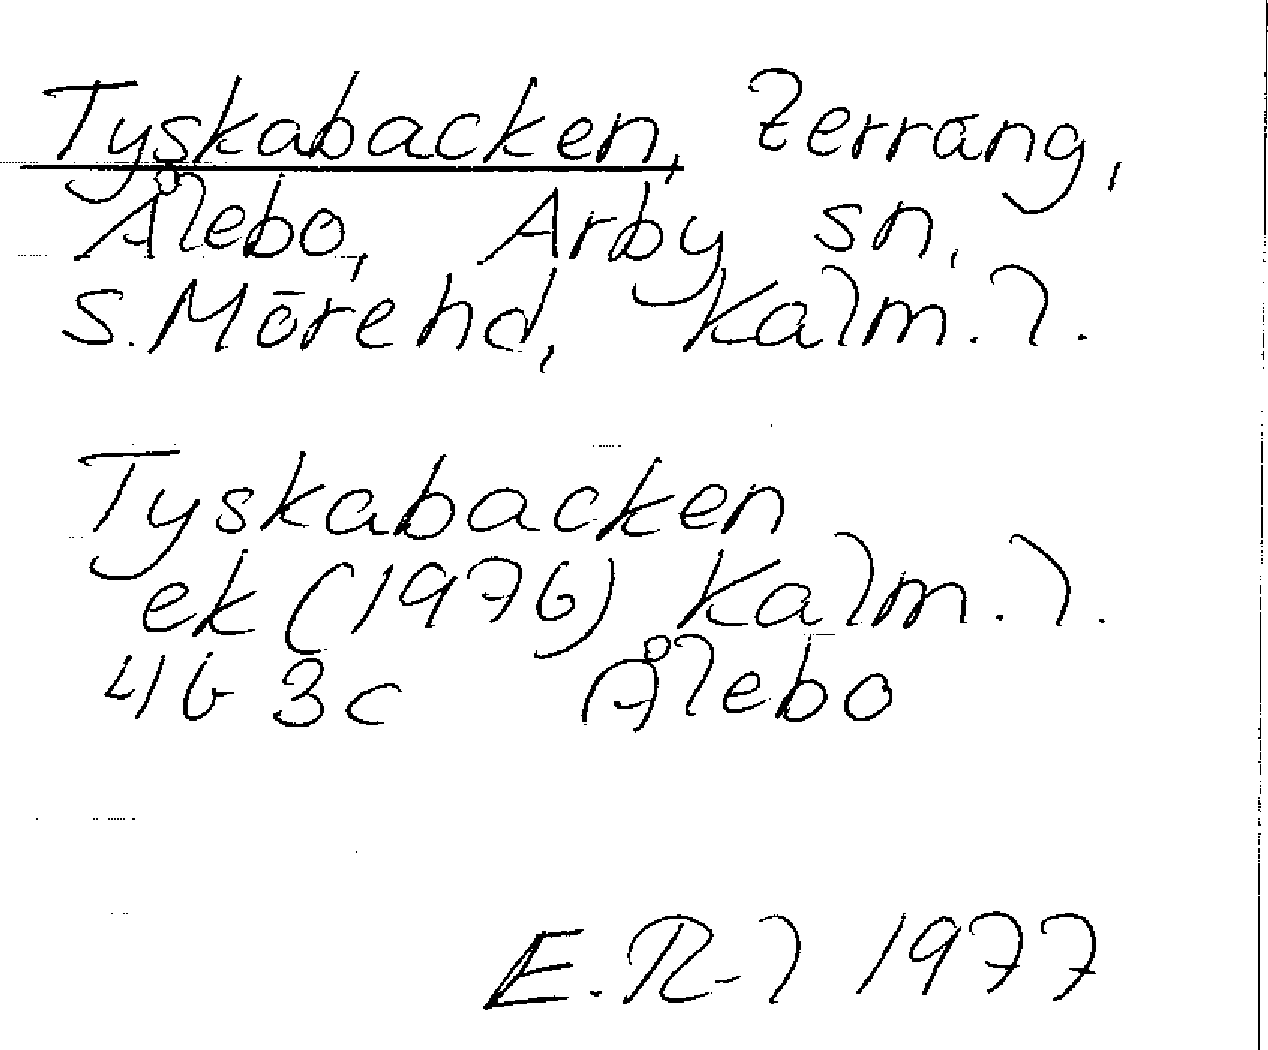 Tyskabacken, terräng,
Ålebo, Arby sn,
S. Möre hd, Kalm. l.
Tyskabacken
ek (1976) Kalm. l.
4G 3c Ålebo
E. R-l 1977